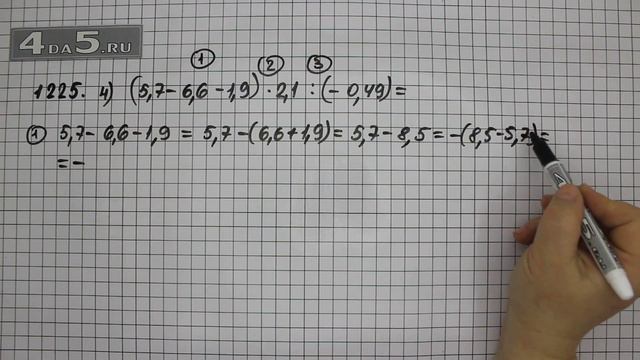 4DA5.RU
① ② ③
1225. 4) (5,7-6,6-1,9) · 2,1 : (-0,49) =
① 5,7-6,6-1,9 = 5,7-(6,6+1,9) = 5,7-8,5 = -(8,5-5,7) =
= -